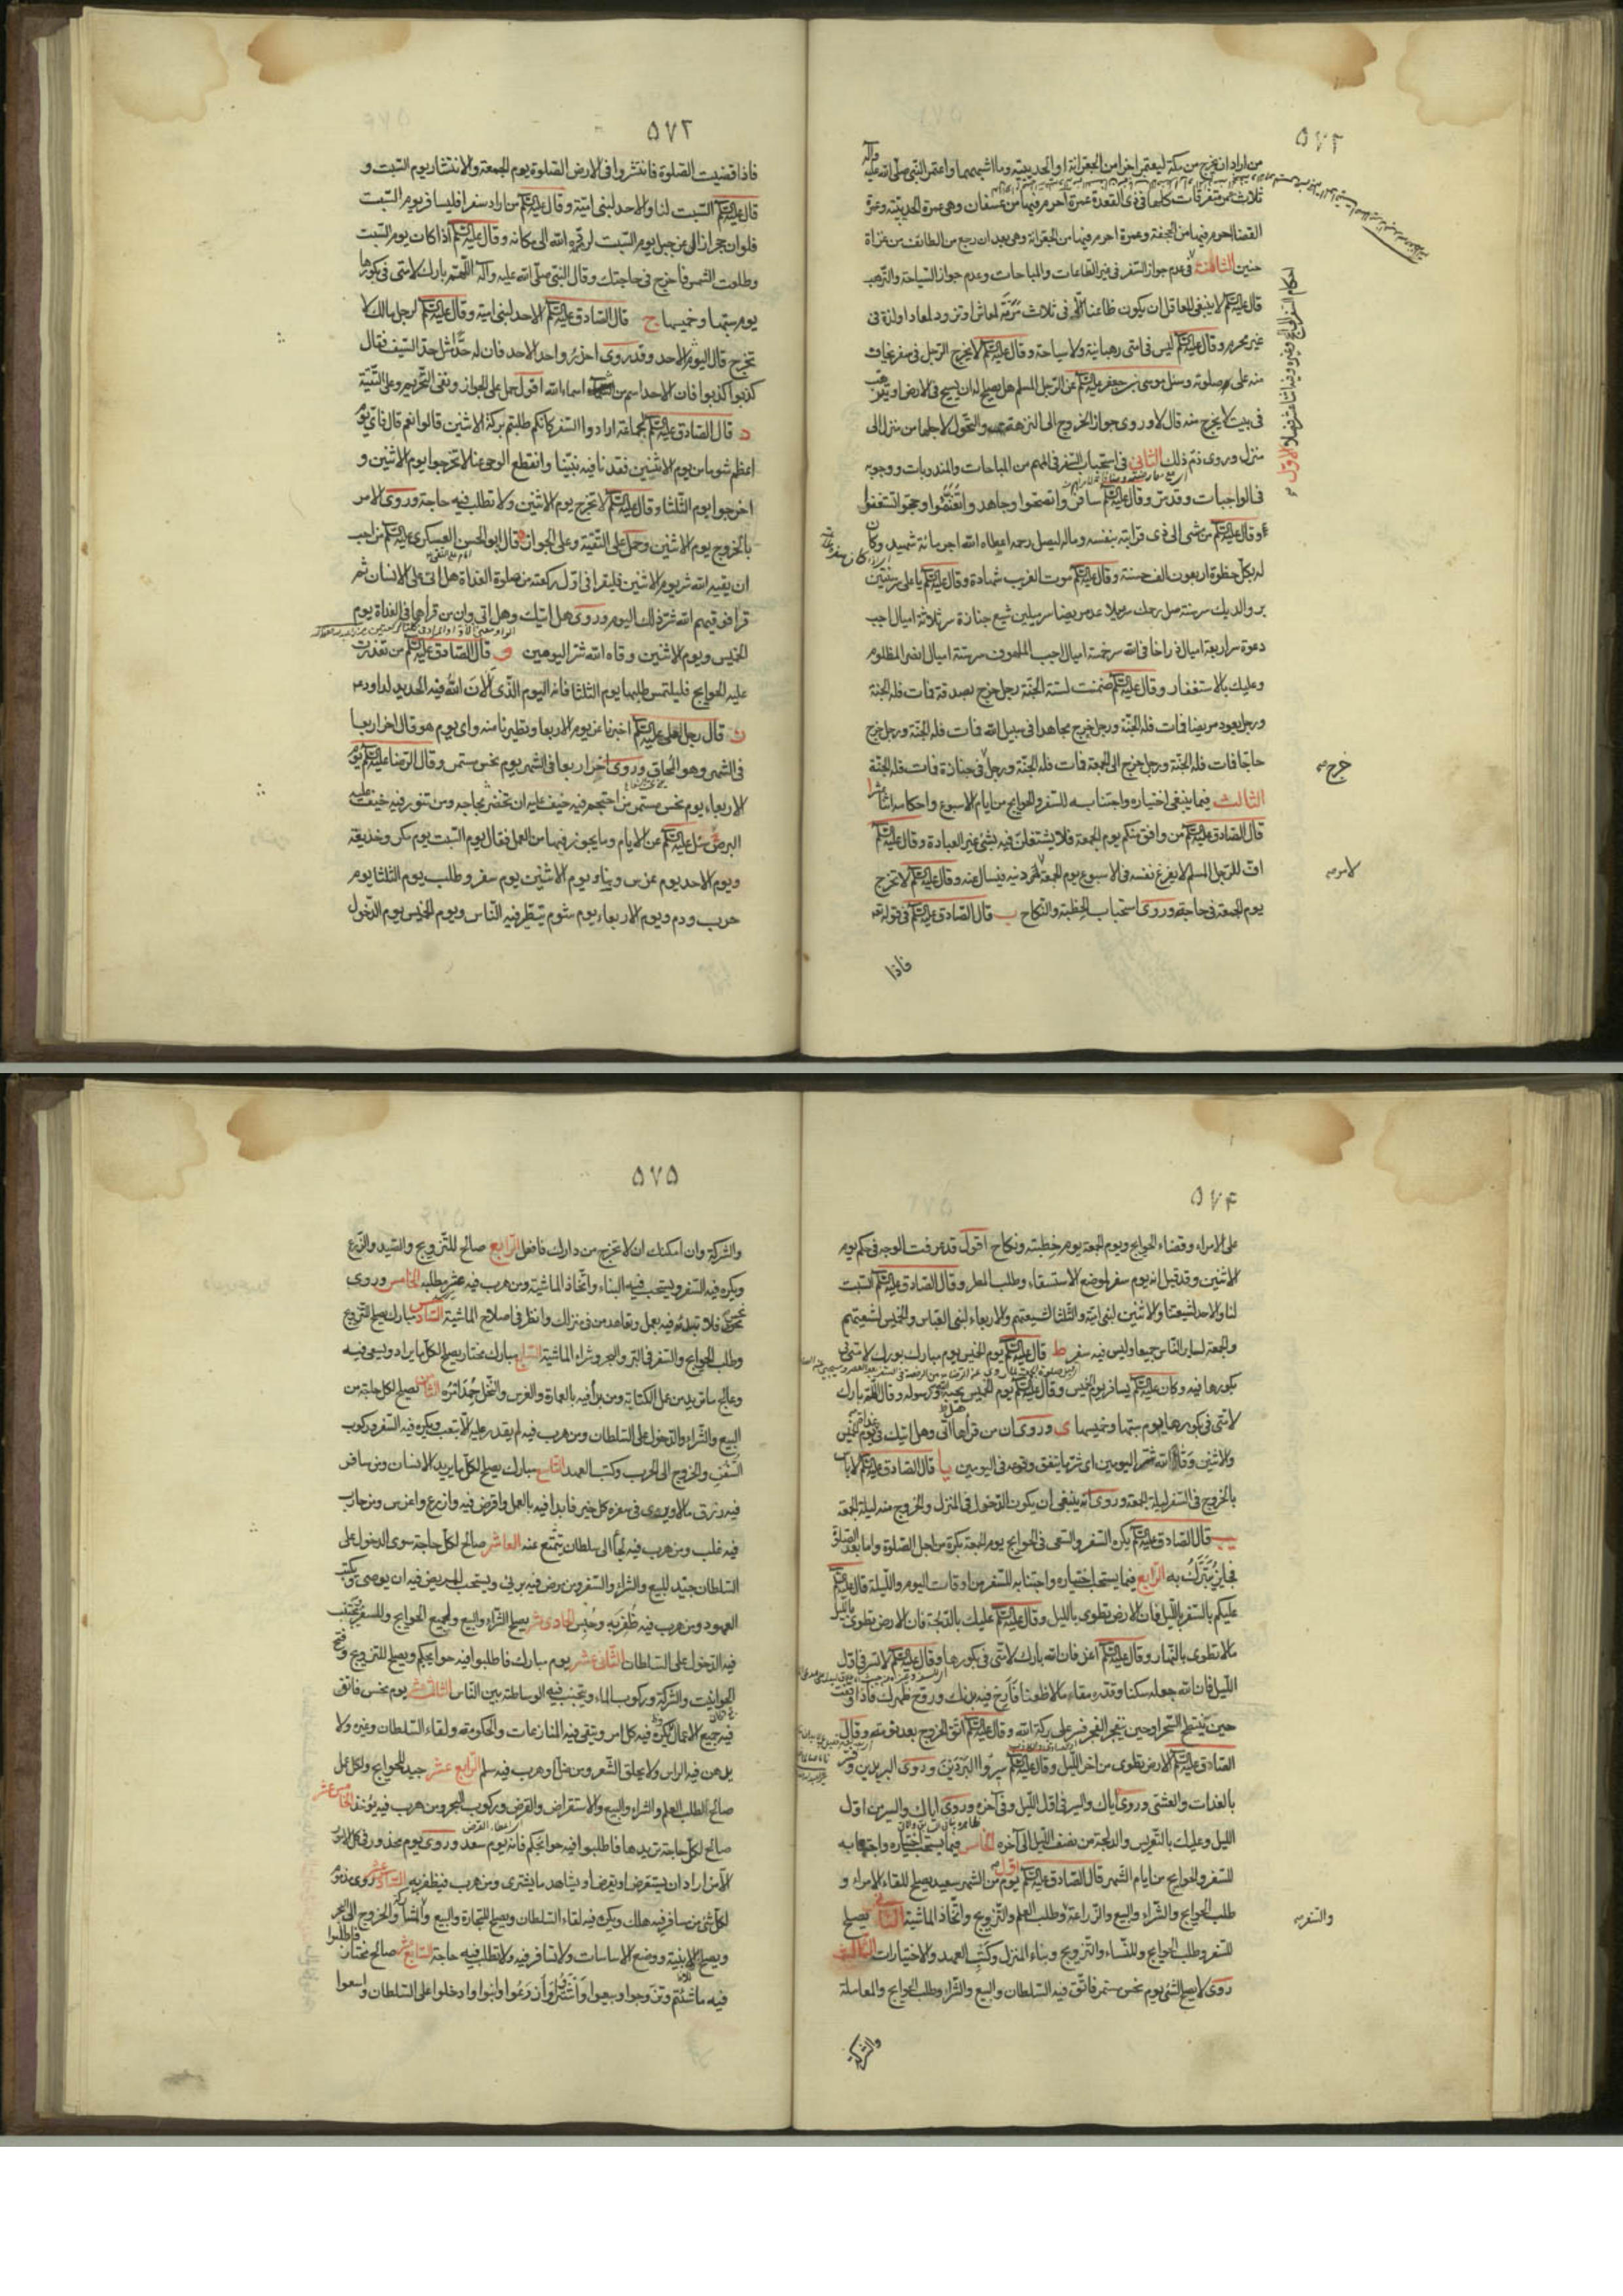 ۵۷۲
من اراد ان يخرج من مكة ليعتمر احرم من الجعرانة او الحديبية وما اشبههما واعتمر النبى صلى الله عليه وآله
ثلاث عمر متفرقات كلها فى ذى القعدة عمرة احرم فيها من عسفان وهى عمرة الحديبية وعمرة
القضا احرم فيها من الجحفة وعمرة احرم فيها من الجعرانة وهى بعد ان رجع من الطائف من غزاة
حنين فى عدم جواز السفر فى غير الطاعات والمباحات وعدم جواز السياحة والترهب
قال عليه السلام لا ينبغى للعاقل ان يكون ظاعنا الا فى ثلاث مرمة لمعاش او تزود لمعاد او لذة فى
غير محرم وقال عليه السلام ليس فى امتى رهبانية ولا سياحة وقال عليه السلام لا يخرج الرجل فى سفر يخاف
منه على صلوته وسئل موسى بن جعفر عليه السلام عن الرجل المسلم هل يصلح له ان يسيح فى الارض او يترهب
فى بيت لا يخرج منه قال لا وروى جواز الخروج الى النزهة والتحول لاجلها من منزل الى
منزل وروى ذم ذلك الثانى فى استحباب السفر فى المهم من المباحات والمندوبات ووجوبه
فى الواجبات وقد مر وقال عليه السلام سافروا تصحوا وجاهدوا تغنموا وحجوا تستغنوا
وقال عليه السلام من مشى الى ذى قرابة بنفسه وماله ليصل رحمه اعطاه الله اجر مائة شهيد وكان
له بكل خطوة اربعون الف حسنة وقال عليه السلام موت الغريب شهادة وقال عليه السلام يا على سر سنتين
بر والديك سر سنة صل رحمك سر ميلا عد مريضا سر ميلين شيع جنازة سر ثلاثة اميال اجب
دعوة سر اربعة اميال زر اخا فى الله سر خمسة اميال اجب الملهوف سر ستة اميال انصر المظلوم
وعليك بالاستغفار وقال عليه السلام ضمنت لستة الجنة رجل خرج بصدقة فمات فله الجنة
ورجل يعود مريضا فمات فله الجنة ورجل خرج مجاهدا فى سبيل الله فمات فله الجنة ورجل خرج
حاجا فمات فله الجنة ورجل خرج الى الجمعة فمات فله الجنة ورجل فى جنازة فمات فله الجنة
الثالث فيما ينبغى اختياره واجتنابه للسفر والحوايج من ايام الاسبوع واحكامه اثنا عشر ا
قال الصادق عليه السلام من وافق منكم يوم الجمعة فلا يشتغلن فيه بشئ غير العبادة وقال عليه السلام
اف للرجل المسلم لا يفرغ نفسه فى الاسبوع يوم الجمعة لامر دينه فيسال عنه وقال عليه السلام لا تخرج
يوم الجمعة فى حاجة وروى استحباب الخطبة والنكاح ب قال الصادق عليه السلام فى قوله تعه
فاذا
خرج صح
لامر صح
فاذا قضيت الصلوة فانتشروا فى الارض الصلوة يوم الجمعة والانتشار يوم السبت و
قال عليه السلام السبت لنا والاحد لبنى امية وقال عليه السلام من اراد سفرا فليسافر يوم السبت
فلو ان حجرا زال عن جبل يوم السبت لرده الله الى مكانه وقال عليه السلام اذا كان يوم السبت
وطلعت الشمس فاخرج فى حاجتك وقال النبى صلى الله عليه وآله اللهم بارك لامتى فى بكورها
يوم سبتها وخميسها ج قال الصادق عليه السلام الاحد لبنى امية وقال عليه السلام لرجل مالك لا
تخرج قال اليوم الاحد وقد روى احذروا حد الاحد فان له حدا مثل حد السيف فقال
كذبوا كذبوا فان الاحد اسم من اسماء الله اقول حمل على الجواز ونفى التحريم وعلى التقية
د قال الصادق عليه السلام لجماعة ارادوا السفر كانكم طلبتم بركة الاثنين قالوا نعم قال فاى يوم
اعظم شوما من يوم الاثنين فقدنا فيه نبينا وانقطع الوحى عنا لا تخرجوا يوم الاثنين و
اخرجوا يوم الثلثا وقال عليه السلام لا تخرج يوم الاثنين ولا تطلب فيه حاجة وروى الامر
بالخروج يوم الاثنين وحمل على التقية وعلى الجواز ه قال ابو الحسن العسكرى عليه السلام من احب
ان يقيه الله شر يوم الاثنين فليقرا فى اول ركعة من صلوة الغداة هل اتى على الانسان ثم
قرا فوقيهم الله شر ذلك اليوم وروى هل اتيك وهل اتى وان من قراهما فى الغداة يوم
الخميس ويوم الاثنين وقاه الله شر اليومين و قال الصادق عليه السلام من تعذرت
عليه الحوايج فليلتمس طلبها يوم الثلثا فانه اليوم الذى الان الله فيه الحديد لداود ع
ز قال رجل لعلى عليه السلام اخبرنا عن يوم الاربعا وتطيرنا منه واى يوم هو قال اخر اربعا
فى الشهر وهو المحاق وروى اخر اربعا فى الشهر يوم نحس مستمر وقال الرضا عليه السلام يوم
الاربعاء يوم نحس مستمر من احتجم فيه خيف عليه ان تخضر محاجمه ومن تنور فيه خيف عليه
البرص ح سئل عليه السلام عن الايام وما يجوز فيها من العمل فقال يوم السبت يوم مكر وخديعة
ويوم الاحد يوم غرس وبناء ويوم الاثنين يوم سفر وطلب يوم الثلثا يوم
حرب ودم ويوم الاربعاء يوم شوم يتطير فيه الناس ويوم الخميس يوم الدخول
۵۷۴
على الامراء وقضاء الحوايج ويوم الجمعة يوم خطبة ونكاح اقول قد عرفت الوجه فى حكم يوم
الاثنين وقد قيل انه يوم سفر لموضع الاستسقاء وطلب المطر وقال الصادق عليه السلام السبت
لنا والاحد لشيعتنا والاثنين لبنى امية والثلثا لشيعتهم والاربعاء لبنى العباس والخميس لشيعتهم
والجمعة لساير الناس جميعا وليس فيه سفر ط قال عليه السلام يوم الخميس يوم مبارك بورك لامتى فى
بكورها فيه وكان عليه السلام يسافر يوم الخميس وقال عليه السلام يوم الخميس يحبه الله ورسوله وقال اللهم بارك
لامتى فى بكورها يوم سبتها وخميسها ى وروى ان من قرا هل اتى وهل اتيك فى غداة يوم الخميس
والاثنين وقاه الله شر اليومين يا قال الصادق عليه السلام لا باس
بالخروج فى السفر ليلة الجمعة وروى انه ينبغى ان يكون الدخول فى المنزل والخروج منه ليلة الجمعة
يب قال الصادق عليه السلام يكره السفر والسعى فى الحوايج يوم الجمعة بكرة من اجل الصلوة واما بعد الصلوة
فجايز يتبرك به الرابع فيما يستحب اختياره واجتنابه للسفر من اوقات اليوم والليلة قال عليه السلام
عليكم بالسفر بالليل فان الارض تطوى بالليل وقال عليه السلام عليك بالدلجة فان الارض تطوى بالليل
ما لا تطوى بالنهار وقال عليه السلام اغز فان الله بارك لامتى فى بكورها وقال عليه السلام لا تسر فى اول
الليل فان الله جعله سكنا وقدره مقاما لا ظعنا فارح فيه بدنك وروح ظهرك فاذا وقفت
حين ينبطح السحر او حين ينفجر الفجر فسر على بركة الله وقال عليه السلام اتق الخروج بعد نومة وقال
الصادق عليه السلام الارض تطوى من اخر الليل وقال عليه السلام سيروا البردين وروى البريدين وفسر
بالغدات والعشى وروى اياك والسير فى اول الليل وفى آخره وروى اياك والسير من اول
الليل وعليك بالتعريس والدلجة من نصف الليل الى آخره الخامس فيما يستحب اختياره واجتنابه
للسفر والحوايج من ايام الشهر قال الصادق عليه السلام اول يوم من الشهر سعيد يصلح للقاء الامراء و
طلب الحوايج والشراء والبيع والزراعة وطلب العلم والتزويج واتخاذ الماشية الثانى يصلح
للسفر وطلب الحوايج وللنساء والتزويج وبناء المنزل وكتب العهد والاختيارات الثالث
روى لا يصلح لشئ يوم نحس مستمر فاتق فيه السلطان والبيع والشراء وطلب الحوايج والمعاملة
والشركة
والسفر صح
۵۷۵
والشركة وان امكنك ان لا تخرج من دارك فافعل الرابع صالح للتزويج والصيد والزرع
ويكره فيه السفر ويستحب فيه البناء واتخاذ الماشية ومن هرب فيه عسر مطلبه الخامس وروى
نحس فلا تبتدئ فيه بعمل وتعاهد من فى منزلك وانظر فى اصلاح الماشية السادس مبارك يصلح للتزويج
وطلب الحوايج والسفر فى البر والبحر وشراء الماشية السابع مبارك مختار يصلح لكل ما يراد ويسعى فيه
وعالج ما تريد من عمل الكتابة ومن بدا فيه بالعمارة والغرس والنخل حمد امره الثامن يصلح لكل حاجة من
البيع والشراء والدخول على السلطان ومن هرب فيه لم يقدر عليه الا بتعب ويكره فيه السفر وركوب
السفن والخروج الى الحرب وكتب العهد التاسع مبارك يصلح لكل ما يريد الانسان ومن سافر
فيه رزق مالا ويرى فى سفره كل خير فابدا فيه بالعمل واقرض فيه وازرع واغرس ومن حارب
فيه غلب ومن هرب فيه لجأ الى سلطان يمتنع عنه العاشر صالح لكل حاجة سوى الدخول على
السلطان جيد للبيع والشراء والسفر ومن مرض فيه برئ ويستحب للمريض فيه ان يوصى ويكتب
العهود ومن هرب فيه ظفر به وحبس الحادى عشر يصلح للشراء والبيع ولجميع الحوايج وللسفر ويجتنب
فيه الدخول على السلطان الثانى عشر يوم مبارك فاطلبوا فيه حوايجكم ويصلح للتزويج وفتح
الحوانيت والشركة وركوب الماء ويجتنب فيه الوساطة بين الناس الثالث عشر يوم نحس فاتق
فيه جميع الاعمال ويكره فيه كل امر ويتقى فيه المنازعات والحكومة ولقاء السلطان وغيره ولا
يدهن فيه الراس ولا يحلق الشعر ومن ضل او هرب فيه سلم الرابع عشر جيد للحوايج ولكل عمل
صالح لطلب العلم والشراء والبيع والاستقراض والقرض وركوب البحر ومن هرب فيه يؤخذ الخامس عشر
صالح لكل حاجة تريدها فاطلبوا فيه حوائجكم فانه يوم سعد وروى يوم محذور فى كل الامور
الا من اراد ان يستقرض او يقرض او يشاهد ما يشترى ومن هرب فيه ظفر به السادس عشر روى مذموم
لكل شئ من سافر فيه هلك ويكره فيه لقاء السلطان ويصلح للتجارة والبيع والمشاركة والخروج الى البحر
ويصلح للابنية ووضع الاساسات ولا تسافر فيه ولا تطلب فيه حاجة السابع عشر صالح مختار فاطلبوا
فيه ما شئتم وتزوجوا وبيعوا واشتروا وازرعوا وابنوا وادخلوا على السلطان واسعوا